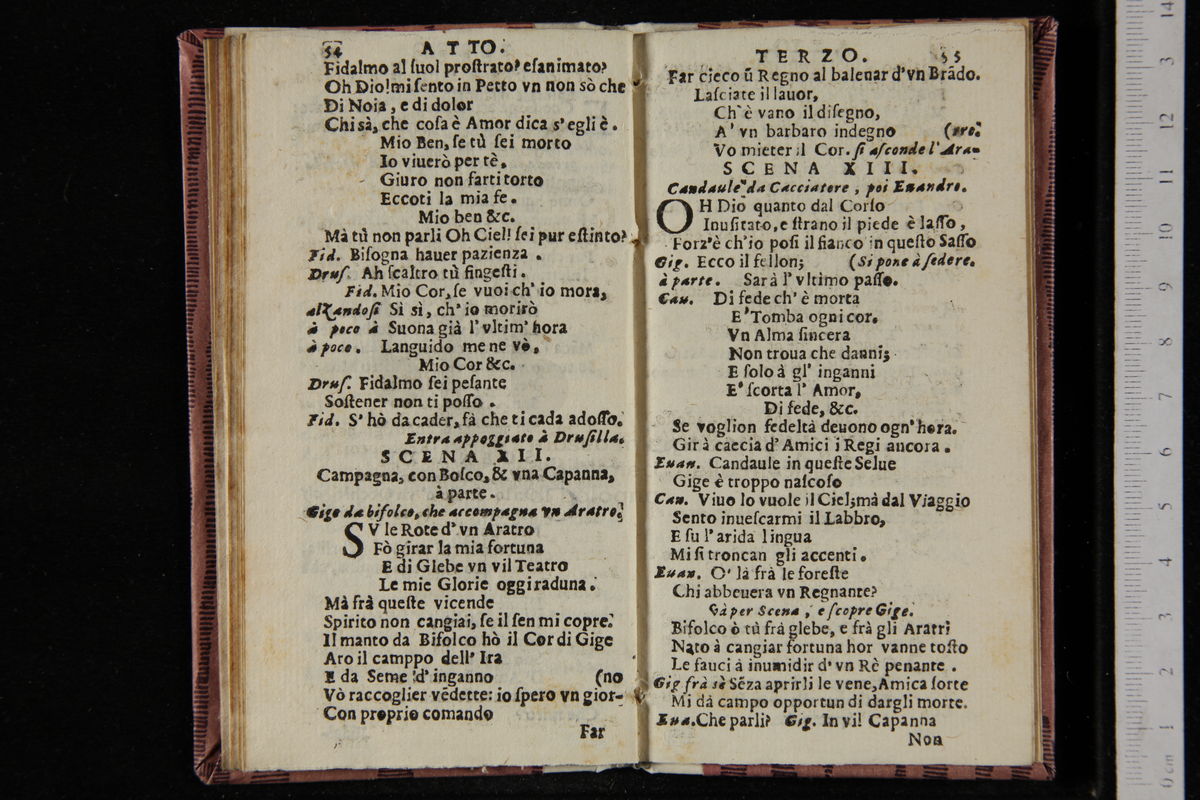 54 ATTO.
Fidalmo al ſuol proſtrato? eſanimato?
Oh Dio! mi ſento in Petto vn non sò che
Di Noia, e di dolor
Chi sà, che coſa è Amor dica s'egli è.
Mio Ben, ſe tù ſei morto
Io viuerò per tè.
Giuro non farti torto
Eccoti la mia fe.
Mio ben &c.
Mà tù non parli Oh Ciel! ſei pur eſtinto?
Fid. Biſogna hauer pazienza.
Druſ. Ah ſcaltro tù fingeſti.
Fid. Mio Cor, ſe vuoi ch'io mora,
alzandoſi Sì sì, ch'io morirò
à poco à Suona già l'vltim'hora
à poco. Languido me ne vò,
Mio Cor &c.
Druſ. Fidalmo ſei peſante
Soſtener non ti poſſo.
Fid. S'hò da cader, fà che ti cada adoſſo.
Entra appoggiato à Druſilla.
SCENA XII.
Campagna, con Boſco, & vna Capanna,
à parte.
Gige da bifolco, che accompagna vn Aratro.
SV le Rote d'vn Aratro
Fò girar la mia fortuna
E di Glebe vn vil Teatro
Le mie Glorie oggi raduna.
Mà frà queſte vicende
Spirito non cangiai, ſe il ſen mi copre.
Il manto da Bifolco hò il Cor di Gige
Aro il camppo dell'Ira
E da Seme d'inganno (no
Vò raccoglier vēdette: io ſpero vn gior-
Con proprio comando
Far
TERZO. 55
Far cieco ũ Regno al balenar d'vn Brādo.
Laſciate il lauor,
Ch'è vano il diſegno,
A' vn barbaro indegno (tro.
Vo mieter il Cor. ſi aſconde l'Ara-
SCENA XIII.
Candaule da Cacciatore, poi Euandro.
OH Dio quanto dal Corſo
Inuſitato, e ſtrano il piede è laſſo,
Forz'è ch'io poſi il fianco in queſto Saſſo
Gig. Ecco il fellon; (Si pone à ſedere.
à parte. Sarà l'vltimo paſſo.
Can. Di fede ch'è morta
E' Tomba ogni cor.
Vn Alma ſincera
Non troua che danni;
E ſolo à gl'inganni
E' ſcorta l'Amor,
Di fede, &c.
Se voglion fedeltà deuono ogn'hora.
Gir à caecia d'Amici i Regi ancora.
Euan. Candaule in queſte Selue
Gige è troppo naſcoſo
Can. Viuo lo vuole il Ciel; mà dal Viaggio
Sento inueſcarmi il Labbro,
E ſu l'arida lingua
Mi ſi troncan gli accenti.
Euan. O' là frà le foreſte
Chi abbeuera vn Regnante?
Và per Scena, e ſcopre Gige.
Bifolco ò tù frà glebe, e frà gli Aratri
Nato à cangiar fortuna hor vanne toſto
Le fauci à inumidir d'vn Rè penante.
Gig frà sè Sēza aprirli le vene, Amica ſorte
Mi dà campo opportun di dargli morte.
Eua. Che parli? Gig. In vil Capanna
Non